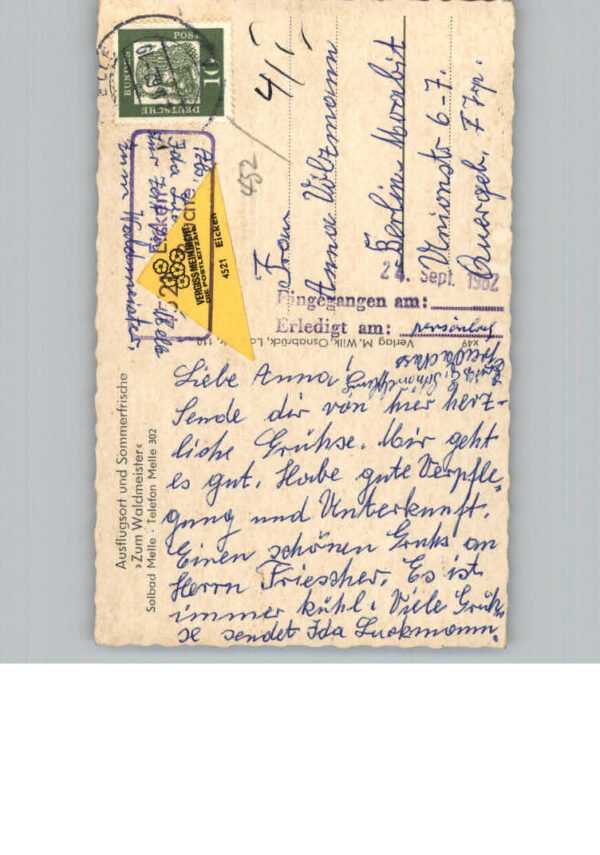 Ausflugsort und Sommerfrische
»Zum Waldmeister«
Solbad Melle · Telefon Melle 302
Liebe Anna!
Sende dir von hier herz-
liche Grühse. Mir geht
es gut. Habe gute Verpfle-
gung und Unterkunft.
Einen schönen Gruhs an
Herrn Friescher. Es ist
immer kühl. Viele Grüh-
se sendet Ida Luckmann.
DEUTSCHE
BUNDES
POST
10
41
452
Frau
Anna Völzmann
Berlin-Moabit
Unionstr 6-7.
Quergeb.
24. Sept. 1962
Eingegangen am:
Erledigt am: persönlich
Verlag M. Wilk, Osnabrück,
x49
VERGISSMEINNICHT
DIE POSTLEITZAHL
4521 Eicken
Abs.
Ida
zur Zeit
Melle
zum Waldmeister,